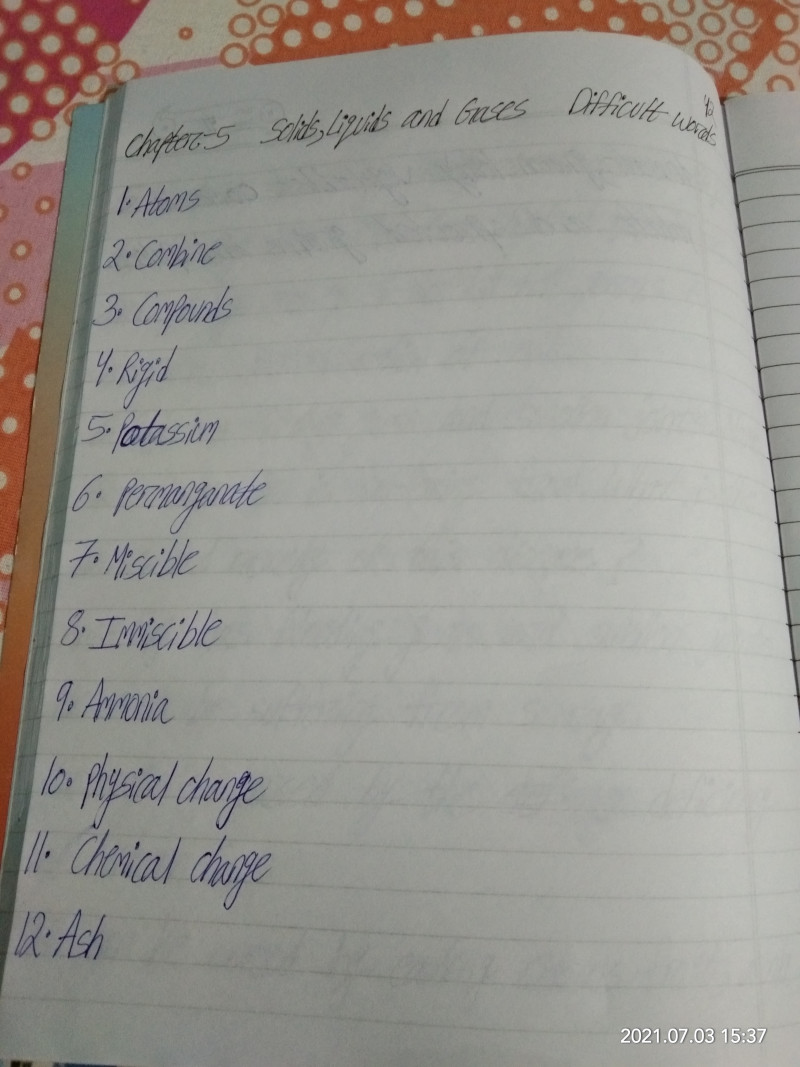 Chapter-5 Solids, Liquids and Gases Difficult words
1. Atoms
2. Combine
3. Compounds
4. Rigid
5. Potassium
6. Permanganate
7. Miscible
8. Immiscible
9. Ammonia
10. Physical change
11. Chemical change
12. Ash
2021.07.03 15:37